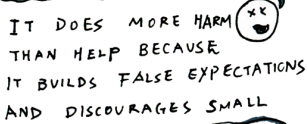 IT DOES MORE HARM
THAN HELP BECAUSE
IT BUILDS FALSE EXPECTATIONS
AND DISCOURAGES SMALL